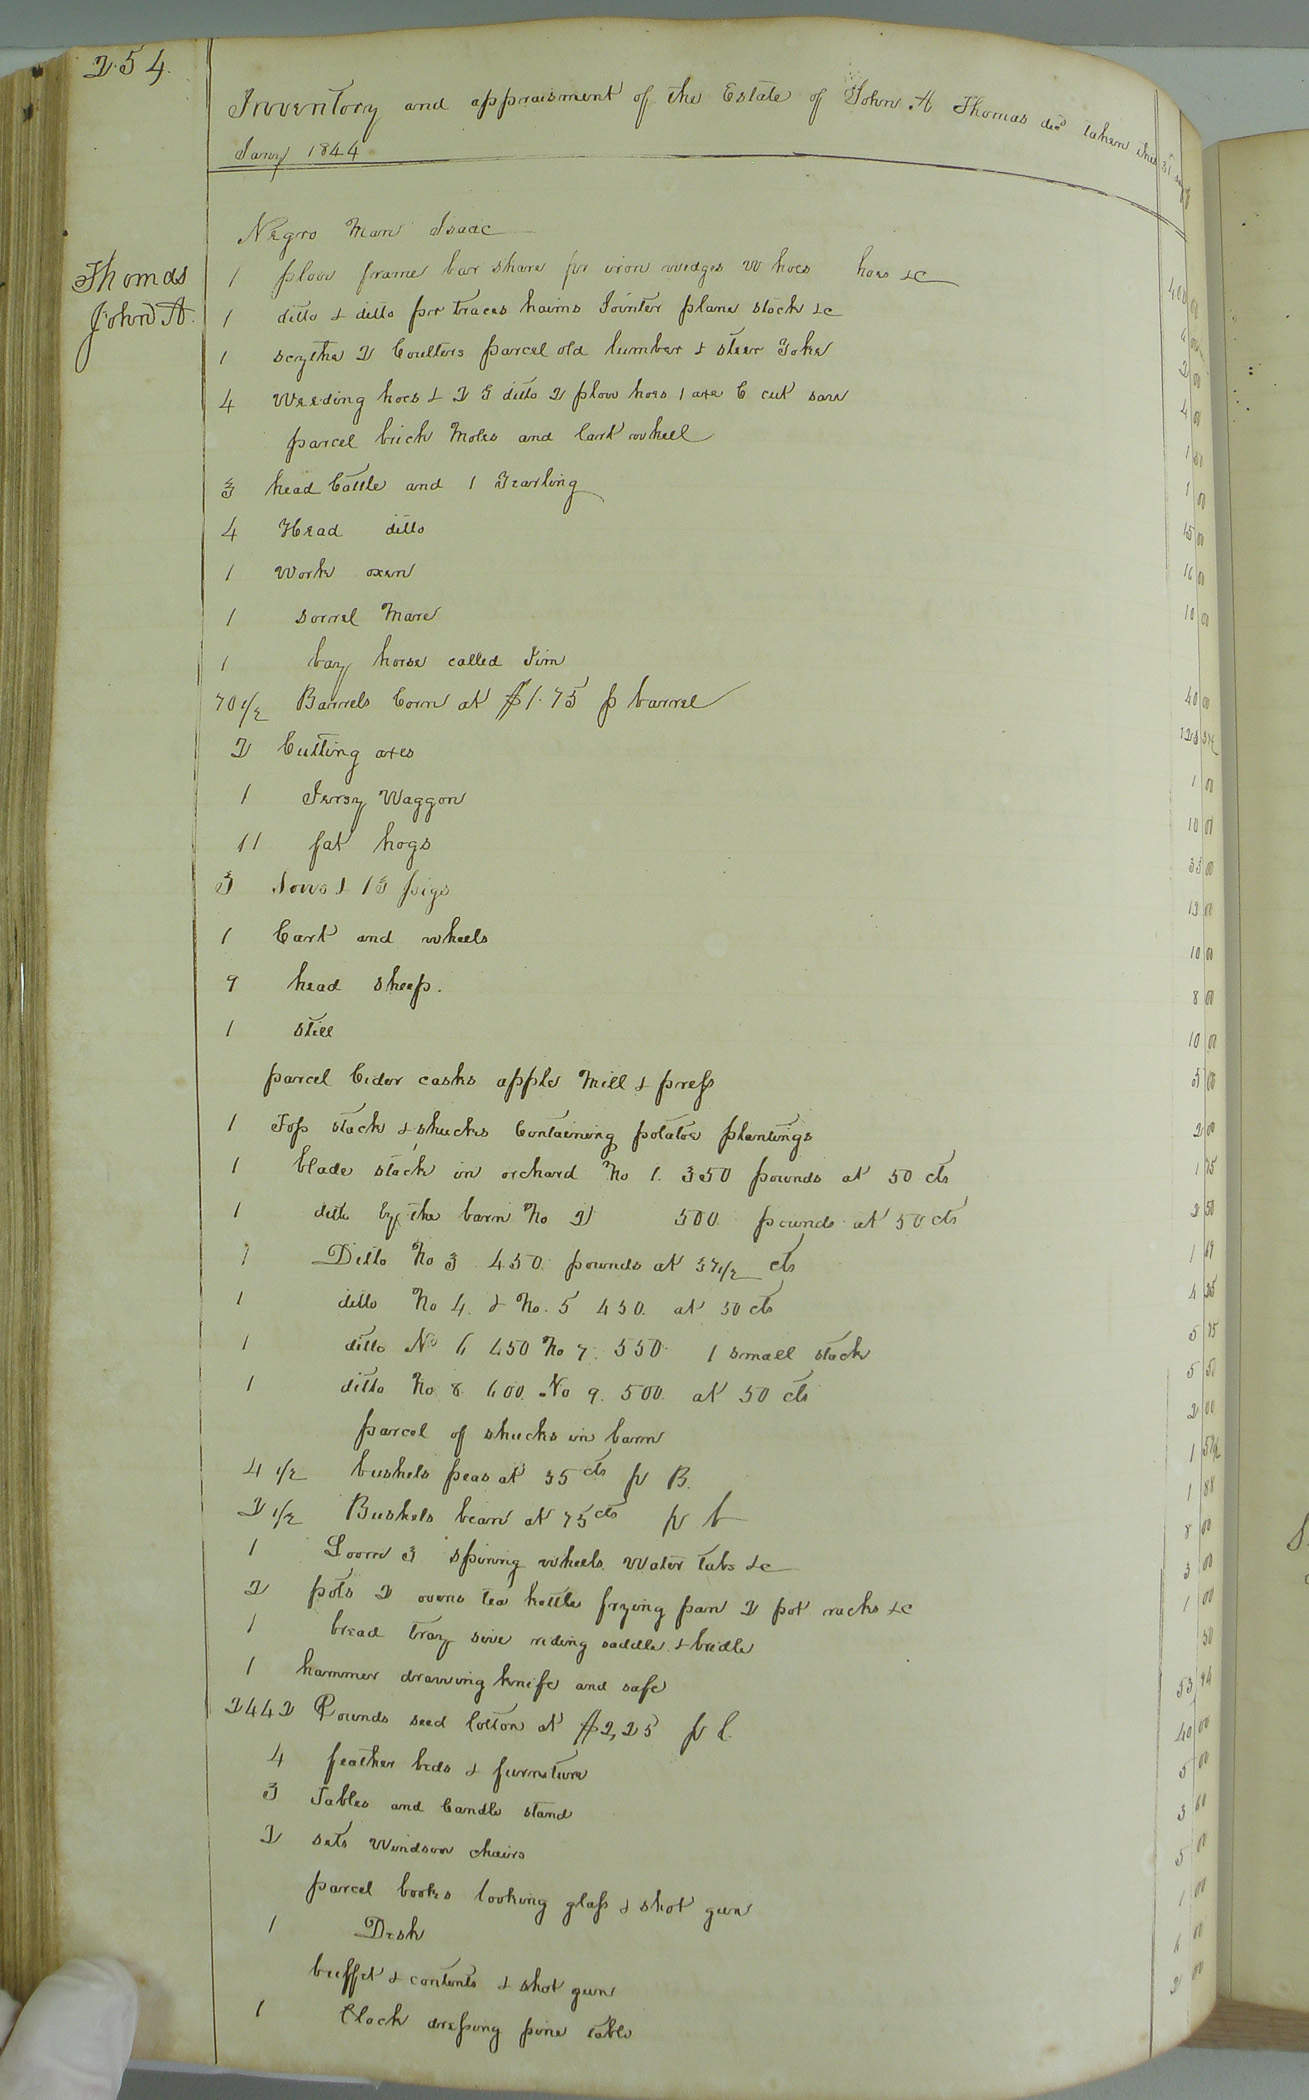 254.
Inventory and appraisment of the Estate of John A Thomas decd taken this 31 day
Jany 1844
Thomas
John A.
Negro Man Isaac 400 00
1 plow frame bar share pr iron wedges W hoes hoes &c 4 00
1 ditto & ditto pr traces haims Jointer plane stock &c 2 00
1 scythe 2 Coulters parcel old lumber & steer Yoke 4 00
4 Weeding hoes & 2 G ditto 2 plow hoes 1 axe C cut saw 1 50
parcel brick Moles and Cart wheel 1 00
3 head Cattle and 1 Yearling 15 00
4 Head ditto 16 00
1 Work oxen 10 00
1 sorrel Mare
1 bay horse called Jim 40 00
70 1/2 Barrels Corn at $1.75 p barrel
2 Cutting axes 1 00
1 Jersy Waggon 10 00
11 fat hogs 33 00
3 Sows & 13 pigs 13 00
1 Cart and wheels 10 00
9 head sheep. 8 00
1 still 10 00
parcel Cider casks apple Mill & press 5 00
1 Top stack & shucks Containing potatoe plantings 2 00
1 blade stack in orchard No 1. 350 pounds at 50 cts 1 75
1 ditto by the barn No 2 500 pounds at 50 cts 2 50
1 Ditto No 3 450 pounds at 37 1/2 cts 1 69
1 ditto No 4. & No. 5 450. at 50 cts
1 ditto No 6 450 No 7. 550. 1 small stack 5 75
1 ditto No 8. 600. No 9. 500. at 50 cts 5 50
parcel of shucks in barn 2 00
4 1/2 bushels peas at 35 cts pr B. 1 57 1/2
2 1/2 Bushels bean at 75 cts pr b 1 88
1 Loom 3 spining wheels. Water tubs &c 8 00
2 pots 2 ovens tea kettle frying pan 2 pot racks &c 3 00
1 bread tray sive riding saddle & bridle 1 00
1 hammer drawing knife and safe 50
2442 Pounds seed Cotton at $2,25 pr C. 53 94
4 feather beds & furneture 40 00
3 Tables and Candle stand 5 00
2 sets Windsor chairs 3 00
parcel books looking glass & shot gun 5 00
1 Desk 1 00
buffet & contents & shot gun 6 00
1 Clock dressing pine table 2 00